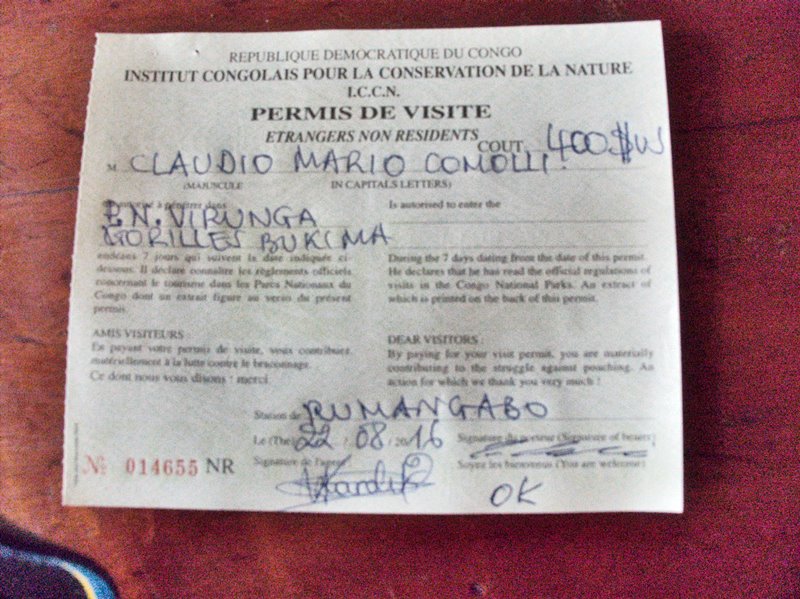 REPUBLIQUE DEMOCRATIQUE DU CONGO
INSTITUT CONGOLAIS POUR LA CONSERVATION DE LA NATURE
I.C.C.N.
PERMIS DE VISITE
ETRANGERS NON RESIDENTS
COUT 400$US
M CLAUDIO MARIO COMOLLI
(MAJUSCULE IN CAPITALS LETTERS)
à pénétrer dans Is autorised to enter the
P.N. VIRUNGA
GORILLES BUKIMA
endéans 7 jours qui suivent la date indiquée ci-
dessous. Il déclare connaître les règlements officiels
concernant le tourisme dans les Parcs Nationaux du
Congo dont un extrait figure au verso du présent
permis.
During the 7 days dating from the date of this permit.
He declares that he has read the official regulations of
visits in the Congo National Parks. An extract of
which is printed on the back of this permit.
AMIS VISITEURS :
En payant votre permis de visite, vous contribuez
matériellement à la lutte contre le braconnage.
Ce dont nous vous disons : merci
DEAR VISITORS :
By paying for your visit permit, you are materially
contributing to the struggle against poaching. An
action for which we thank you very much !
Station de RUMANGABO
Le (The) 22 / 08 / 2016
Signature du porteur (Signature of bearer)
№ 014655 NR
Signature de l'agent
Soyez les bienvenus (You are welcome)
OK